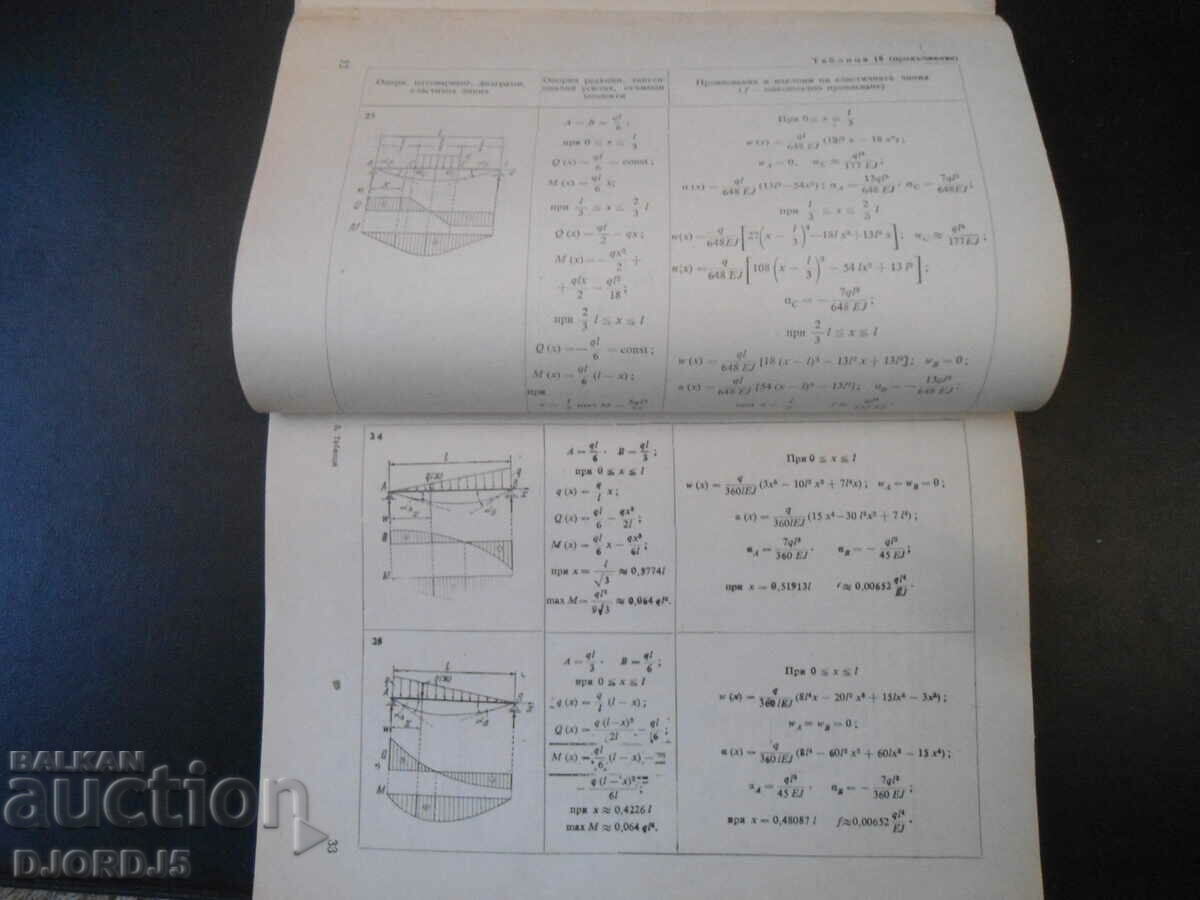 32
Таблица 18 (продължение)
Опори, натоварване, диаграми, еластична линия
Опорни реакции, напречни усилия, огъващи моменти
Провисвания и наклони на еластичната линия
(f — максимално провисване)
A = B = ql/6;
при 0 ≤ x ≤ l/3
Q (x) = ql/6 = const;
M (x) = ql/6 x;
при l/3 ≤ x ≤ 2/3 l
Q (x) = ql/2 − qx;
M (x) = − qx²/2 +
+ qlx/2 − ql²/18;
при 2/3 l ≤ x ≤ l
Q (x) = − ql/6 = const;
M (x) = ql/6 (l − x);
при
При 0 ≤ x ≤ l/3
w (x) = ql/648 EJ (13l² x − 18 x³);
w_A = 0, w_C ≈ ql⁴/177 EJ;
α (x) = ql/648 EJ (13l² − 54x²); α_A = 13ql³/648 EJ, α_C = 7ql³/648 EJ;
при l/3 ≤ x ≤ 2/3 l
w(x) = q/648EJ [27(x − l/3)⁴ − 18l x³ + 13l³ x]; w_C ≈ ql⁴/177EJ;
α(x) = q/648 EJ [108 (x − l/3)³ − 54 lx² + 13 l³];
α_C = − 7ql³/648 EJ;
при 2/3 l ≤ x ≤ l
w (x) = ql/648 EJ [18 (x − l)³ − 13l² x + 13l³]; w_B = 0;
α (x) = ql/648 EJ [54 (x − l)² − 13l²]; α_B = − 13ql³/648 EJ;
24
A = ql/6, B = ql/3;
при 0 ≤ x ≤ l
q (x) = q/l x;
Q (x) = ql/6 − qx²/2l;
M (x) = ql/6 x − qx³/6l;
при x = l/√3 ≈ 0,5774l
max M = ql²/9√3 ≈ 0,064 ql².
При 0 ≤ x ≤ l
w (x) = q/360lEJ (3x⁵ − 10l² x³ + 7l⁴x); w_A = w_B = 0;
α (x) = q/360lEJ (15 x⁴ − 30 l²x² + 7 l⁴);
α_A = 7ql³/360 EJ, α_B = − ql³/45 EJ;
при x = 0,51913l f ≈ 0,00652 ql⁴/EJ.
A = ql/3, B = ql/6;
при 0 ≤ x ≤ l
q (x) = q/l (l − x);
Q (x) = q (l − x)²/2l − ql/6;
M (x) = ql/6 (l − x) −
− q (l − x)³/6l;
при x ≈ 0,4226 l
max M ≈ 0,064 ql².
При 0 ≤ x ≤ l
w (x) = q/360 lEJ (8l⁴x − 20l² x³ + 15lx⁴ − 3x⁵);
w_A = w_B = 0;
α (x) = q/360 lEJ (8l⁴ − 60l² x² + 60lx³ − 15 x⁴);
α_A = ql³/45 EJ, α_B = − 7ql³/360 EJ;
при x = 0,48087 l f ≈ 0,00652 ql⁴/EJ.
33
BALKAN
auction
DJORDJ5